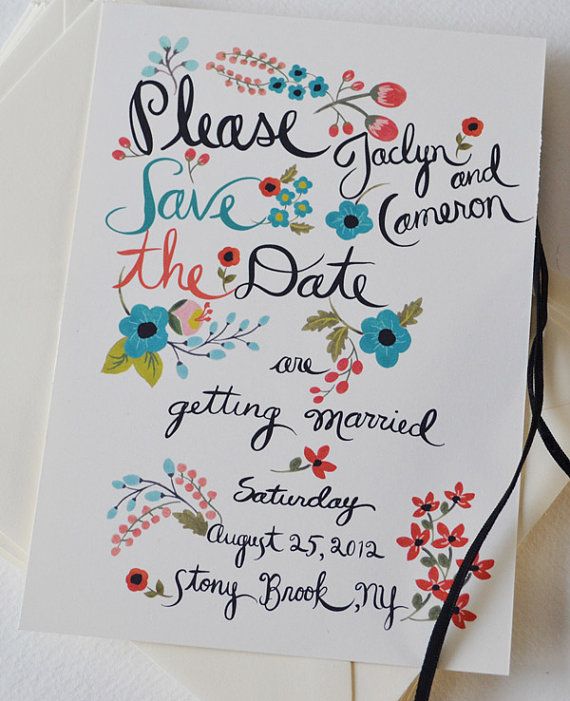 Please
Save
the Date
Jaclyn
and
Cameron
are
getting married
Saturday
August 25, 2012
Stony Brook, NY